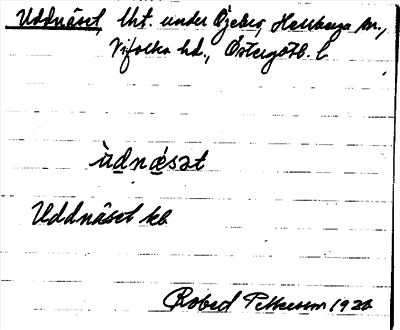 Uddnäset lht. under Öjebro, Harstads sn.,
Vifolka hd., Östergötl. l
ùdnǽsət
Uddnäset kb
Robert Pettersson 1920